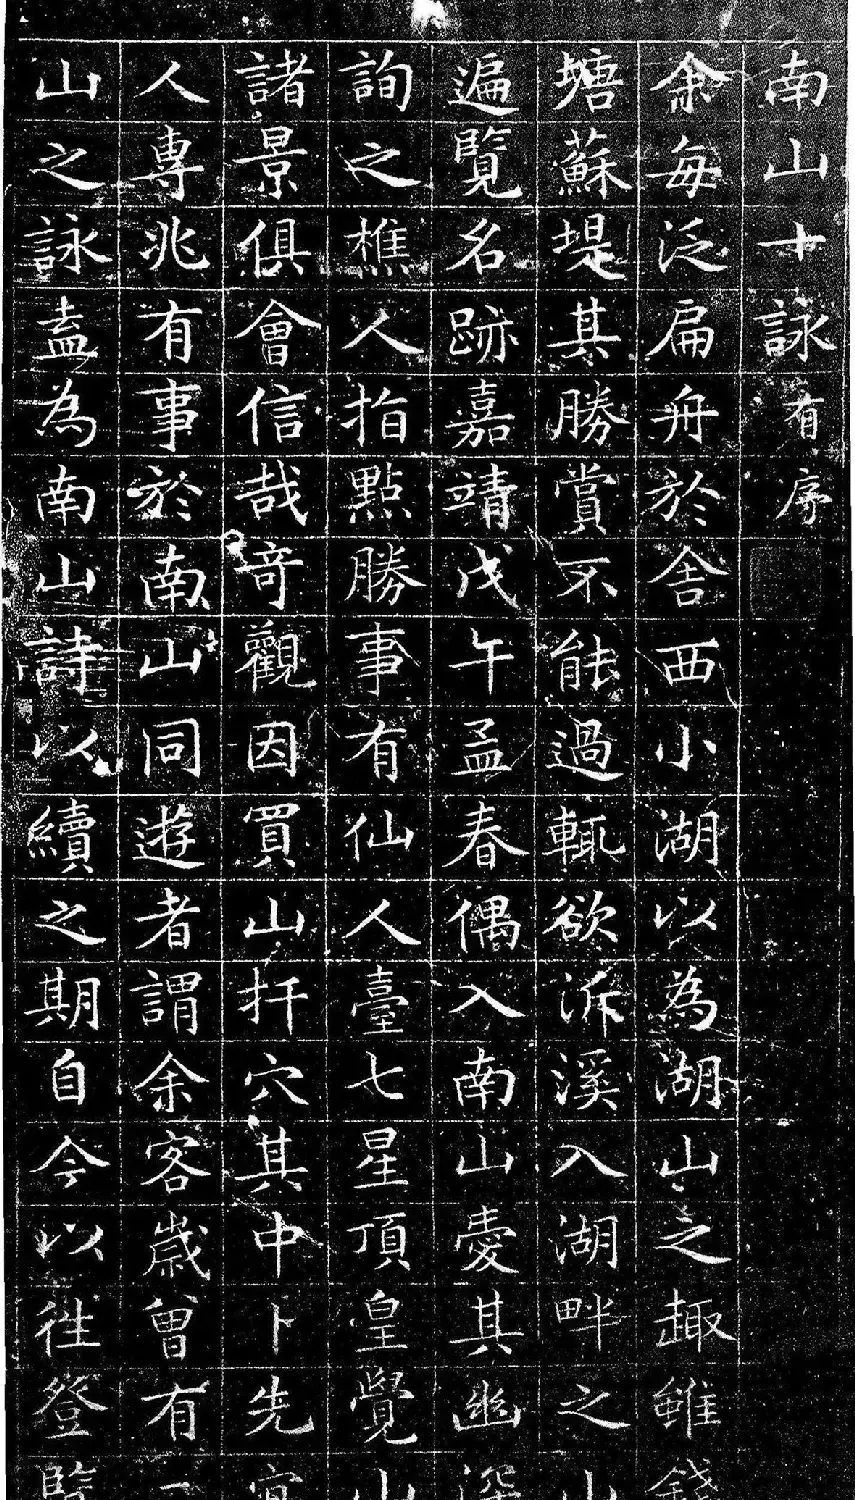 南山十詠有序
余每泛扁舟於舍西小湖以為湖山之趣雖錢
塘蘇堤其勝賞不能過輒欲泝溪入湖畔之山
遍覽名跡嘉靖戊午孟春偶入南山愛其幽深
詢之樵人指點勝事有仙人臺七星頂皇覺山
諸景俱會信哉奇觀因買山扦穴其中卜先
人專兆有事於南山同遊者謂余客歲曾有
山之詠盍為南山詩以續之期自今以往登覽